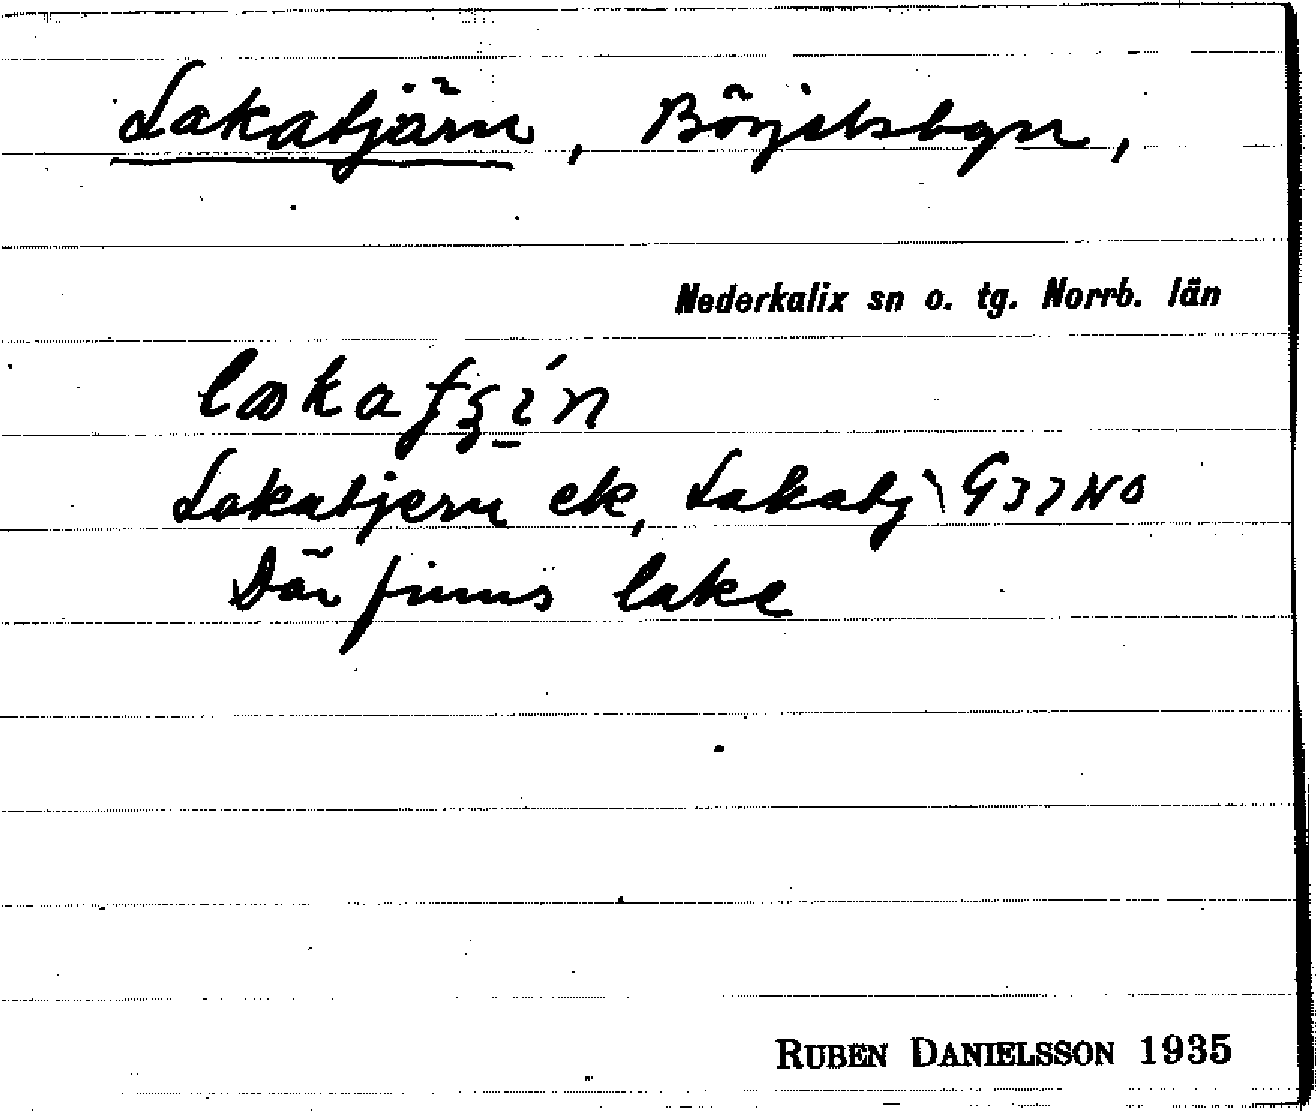 Lakatjärn, Börjelsbyn,
Nederkalix sn o. tg. Norrb. län
Lakatjern ek, Lakatj\ G33NO
Där finns lake
RUBEN DANIELSSON 1935